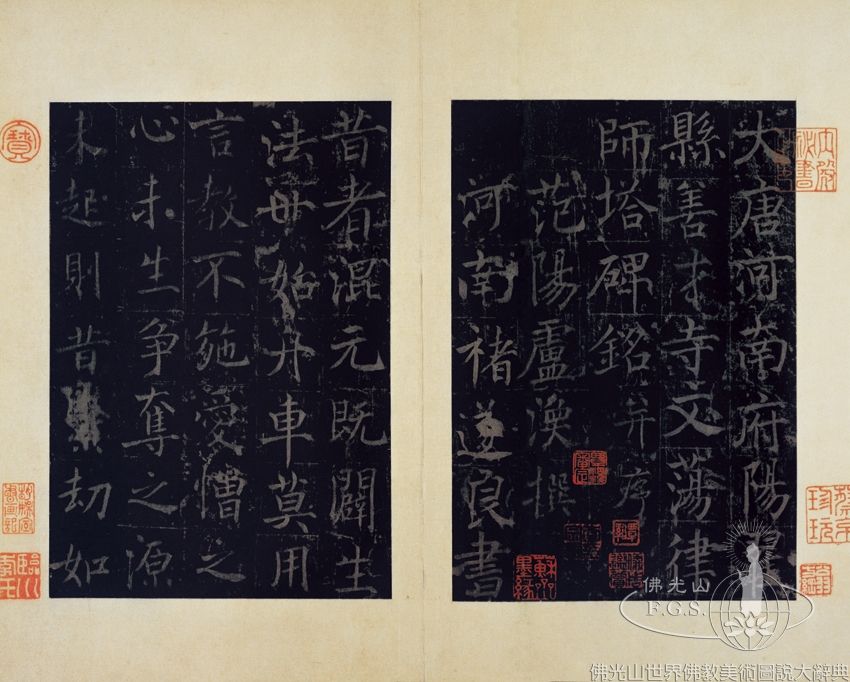 大唐河南府陽翟
縣善才寺文蕩律
師塔碑銘并序
范陽盧渙撰
河南褚遂良書
昔者混元既闢生
法毋始舟車莫用
言教不施愛憎之
心未生争奪之源
未起則昔劫如
蔡京珍玩
臨川李氏
佛光山
F.G.S.
佛光山世界佛教美術圖說大辭典